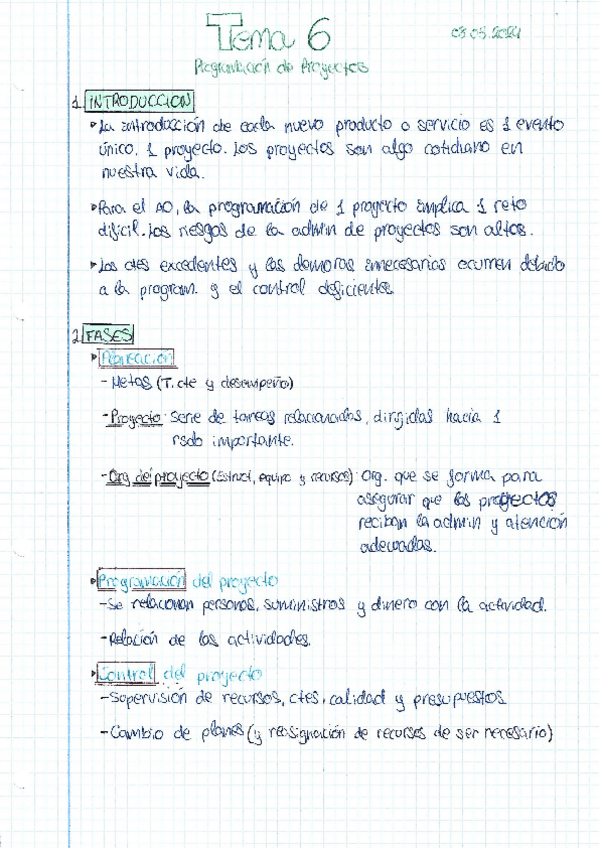 Tema 6
03.05.2024
Programación de Proyectos
1. INTRODUCCION
▸La introducción de cada nuevo producto o servicio es 1 evento
único, 1 proyecto. Los proyectos son algo cotidiano en
nuestra vida.
▸Para el AO, la programación de 1 proyecto implica 1 reto
dificil. Los riesgos de la admin de proyectos son altos.
▸Los ctes excedentes y las demoras innecesarias ocurren debido
a la program. y el control deficientes
2. FASES
▸Planeación
- Metas (T. cte y desempeño)
- Proyecto: Serie de tareas relacionadas, dirigidas hacia 1
rsdo importante.
- Org del proyecto (Estruct, equipo y recursos): Org. que se forma para
asegurar que los proyectos
reciban la admin y atención
adecuadas.
▸Programación del proyecto
- Se relacionan personas, suministros y dinero con la actividad.
- Relación de las actividades.
▸Control del proyecto
- Supervisión de recursos, ctes, calidad y presupuestos
- Cambio de planes (y reasignación de recursos de ser necesario)